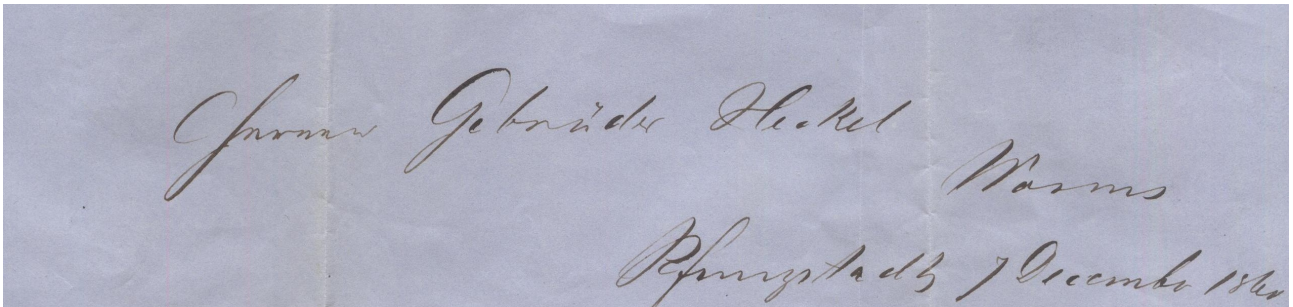 Herren Gebrüder Heckel
Worms
Pfungstadt, 7 December 1860